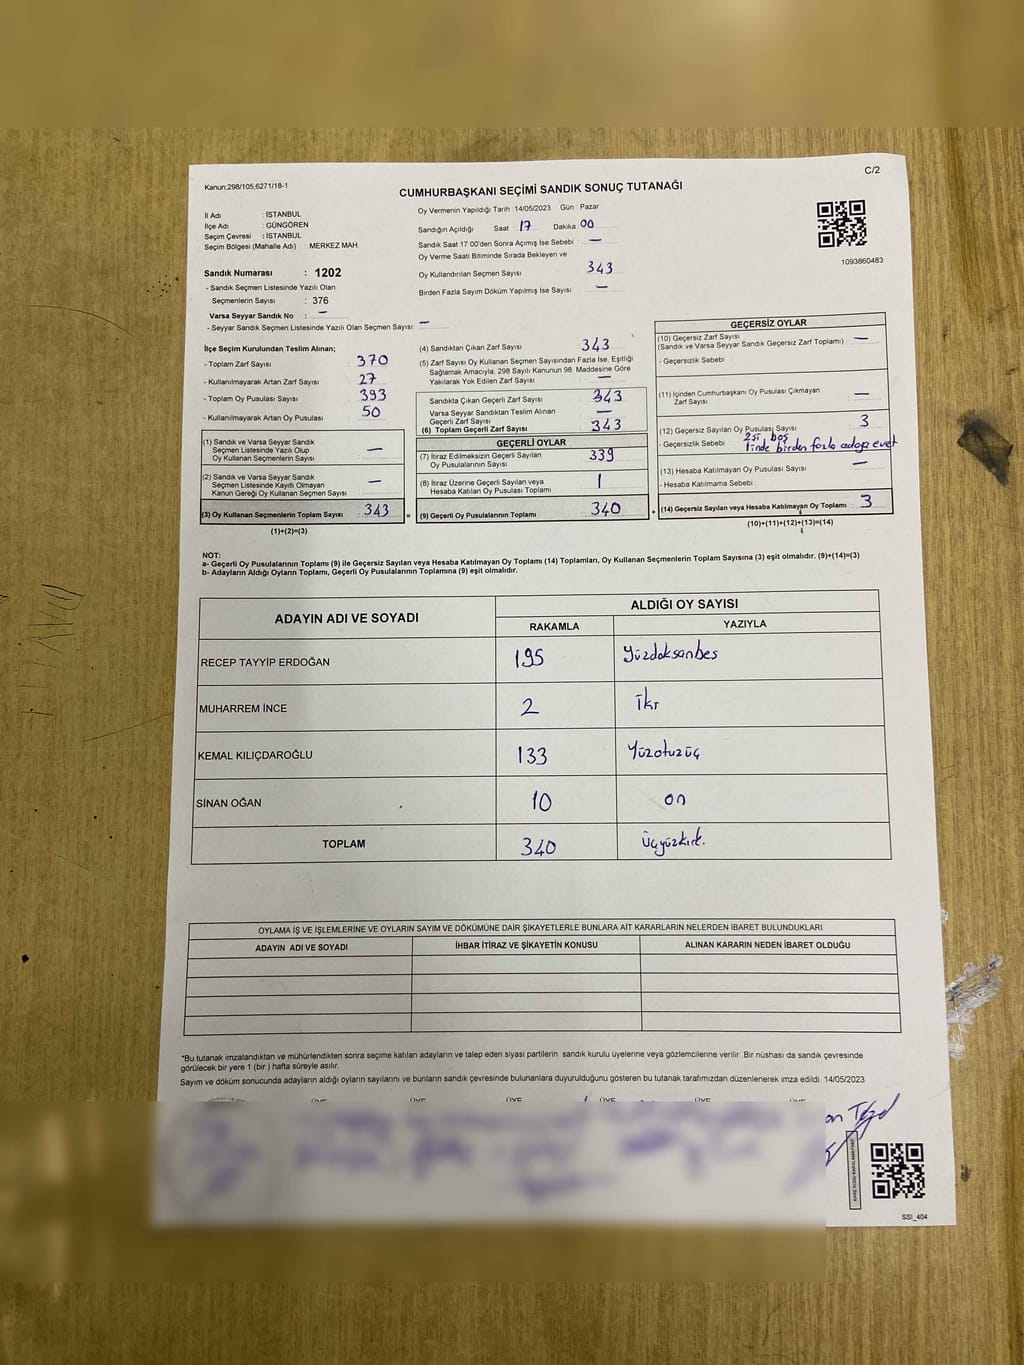 C/2
Kanun;298/105,6271/18-1
CUMHURBAŞKANI SEÇİMİ SANDIK SONUÇ TUTANAĞI
İl Adı : İSTANBUL
İlçe Adı : GÜNGÖREN
Seçim Çevresi : İSTANBUL
Seçim Bölgesi (Mahalle Adı) : MERKEZ MAH.
Sandık Numarası : 1202
- Sandık Seçmen Listesinde Yazılı Olan
Seçmenlerin Sayısı : 376
Varsa Seyyar Sandık No : —
- Seyyar Sandık Seçmen Listesinde Yazılı Olan Seçmen Sayısı: —
Oy Vermenin Yapıldığı Tarih :14/05/2023 Gün : Pazar
Sandığın Açıldığı Saat 17 Dakika 00
Sandık Saat 17:00'den Sonra Açımış İse Sebebi : —
Oy Verme Saati Bitiminde Sırada Bekleyen ve
Oy Kullandırılan Seçmen Sayısı 343
Birden Fazla Sayım Döküm Yapılmış İse Sayısı : —
1093860483
İlçe Seçim Kurulundan Teslim Alınan;
- Toplam Zarf Sayısı : 370
- Kullanılmayarak Artan Zarf Sayısı : 27
- Toplam Oy Pusulası Sayısı : 393
- Kullanılmayarak Artan Oy Pusulası : 50
(1) Sandık ve Varsa Seyyar Sandık
Seçmen Listesinde Yazılı Olup
Oy Kullanan Seçmenlerin Sayısı —
(2) Sandık ve Varsa Seyyar Sandık
Seçmen Listesinde Kayıtlı Olmayan
Kanun Gereği Oy Kullanan Seçmen Sayısı —
(3) Oy Kullanan Seçmenlerin Toplam Sayısı : 343 =
(1)+(2)=(3)
(4) Sandıktan Çıkan Zarf Sayısı 343
(5) Zarf Sayısı Oy Kullanan Seçmen Sayısından Fazla İse, Eşitliği
Sağlamak Amacıyla, 298 Sayılı Kanunun 98. Maddesine Göre
Yakılarak Yok Edilen Zarf Sayısı —
Sandıkta Çıkan Geçerli Zarf Sayısı 343
Varsa Seyyar Sandıktan Teslim Alınan
Geçerli Zarf Sayısı —
(6) Toplam Geçerli Zarf Sayısı 343
GEÇERLİ OYLAR
(7) İtiraz Edilmeksizin Geçerli Sayılan
Oy Pusulalarının Sayısı 339
(8) İtiraz Üzerine Geçerli Sayılan veya
Hesaba Katılan Oy Pusulası Toplamı 1
(9) Geçerli Oy Pusulalarının Toplamı 340 +
GEÇERSİZ OYLAR
(10) Geçersiz Zarf Sayısı
(Sandık ve Varsa Seyyar Sandık Geçersiz Zarf Toplamı) —
- Geçersizlik Sebebi
(11) İçinden Cumhurbaşkanı Oy Pusulası Çıkmayan
Zarf Sayısı —
(12) Geçersiz Sayılan Oy Pusulası Sayısı 3
- Geçersizlik Sebebi 2si boş
1inde birden fazla adaya evet
(13) Hesaba Katılmayan Oy Pusulası Sayısı —
- Hesaba Katılmama Sebebi
(14) Geçersiz Sayılan veya Hesaba Katılmayan Oy Toplamı : 3
(10)+(11)+(12)+(13)=(14)
NOT:
a- Geçerli Oy Pusulalarının Toplamı (9) ile Geçersiz Sayılan veya Hesaba Katılmayan Oy Toplamı (14) Toplamları, Oy Kullanan Seçmenlerin Toplam Sayısına (3) eşit olmalıdır. (9)+(14)=(3)
b- Adayların Aldığı Oyların Toplamı, Geçerli Oy Pusulalarının Toplamına (9) eşit olmalıdır.
ADAYIN ADI VE SOYADI ALDIĞI OY SAYISI
RAKAMLA YAZIYLA
RECEP TAYYİP ERDOĞAN 195 Yüzdoksanbeş
MUHARREM İNCE 2 İki
KEMAL KILIÇDAROĞLU 133 Yüzotuzüç
SİNAN OĞAN 10 on
TOPLAM 340 Üçyüzkırk.
OYLAMA İŞ VE İŞLEMLERİNE VE OYLARIN SAYIM VE DÖKÜMÜNE DAİR ŞİKAYETLERLE BUNLARA AİT KARARLARIN NELERDEN İBARET BULUNDUKLARI
ADAYIN ADI VE SOYADI İHBAR İTİRAZ VE ŞİKAYETİN KONUSU ALINAN KARARIN NEDEN İBARET OLDUĞU
*Bu tutanak imzalandıktan ve mühürlendikten sonra seçime katılan adayların ve talep eden siyasi partilerin sandık kurulu üyelerine veya gözlemcilerine verilir. Bir nüshası da sandık çevresinde
görülecek bir yere 1 (bir ) hafta süreyle asılır.
Sayım ve döküm sonucunda adayların aldığı oyların sayılarını ve bunların sandık çevresinde bulunanlara duyurulduğunu gösteren bu tutanak tarafımızdan düzenlenerek imza edildi. 14/05/2023
ÜYE ÜYE ÜYE ÜYE ÜYE ÜYE
SSI_404